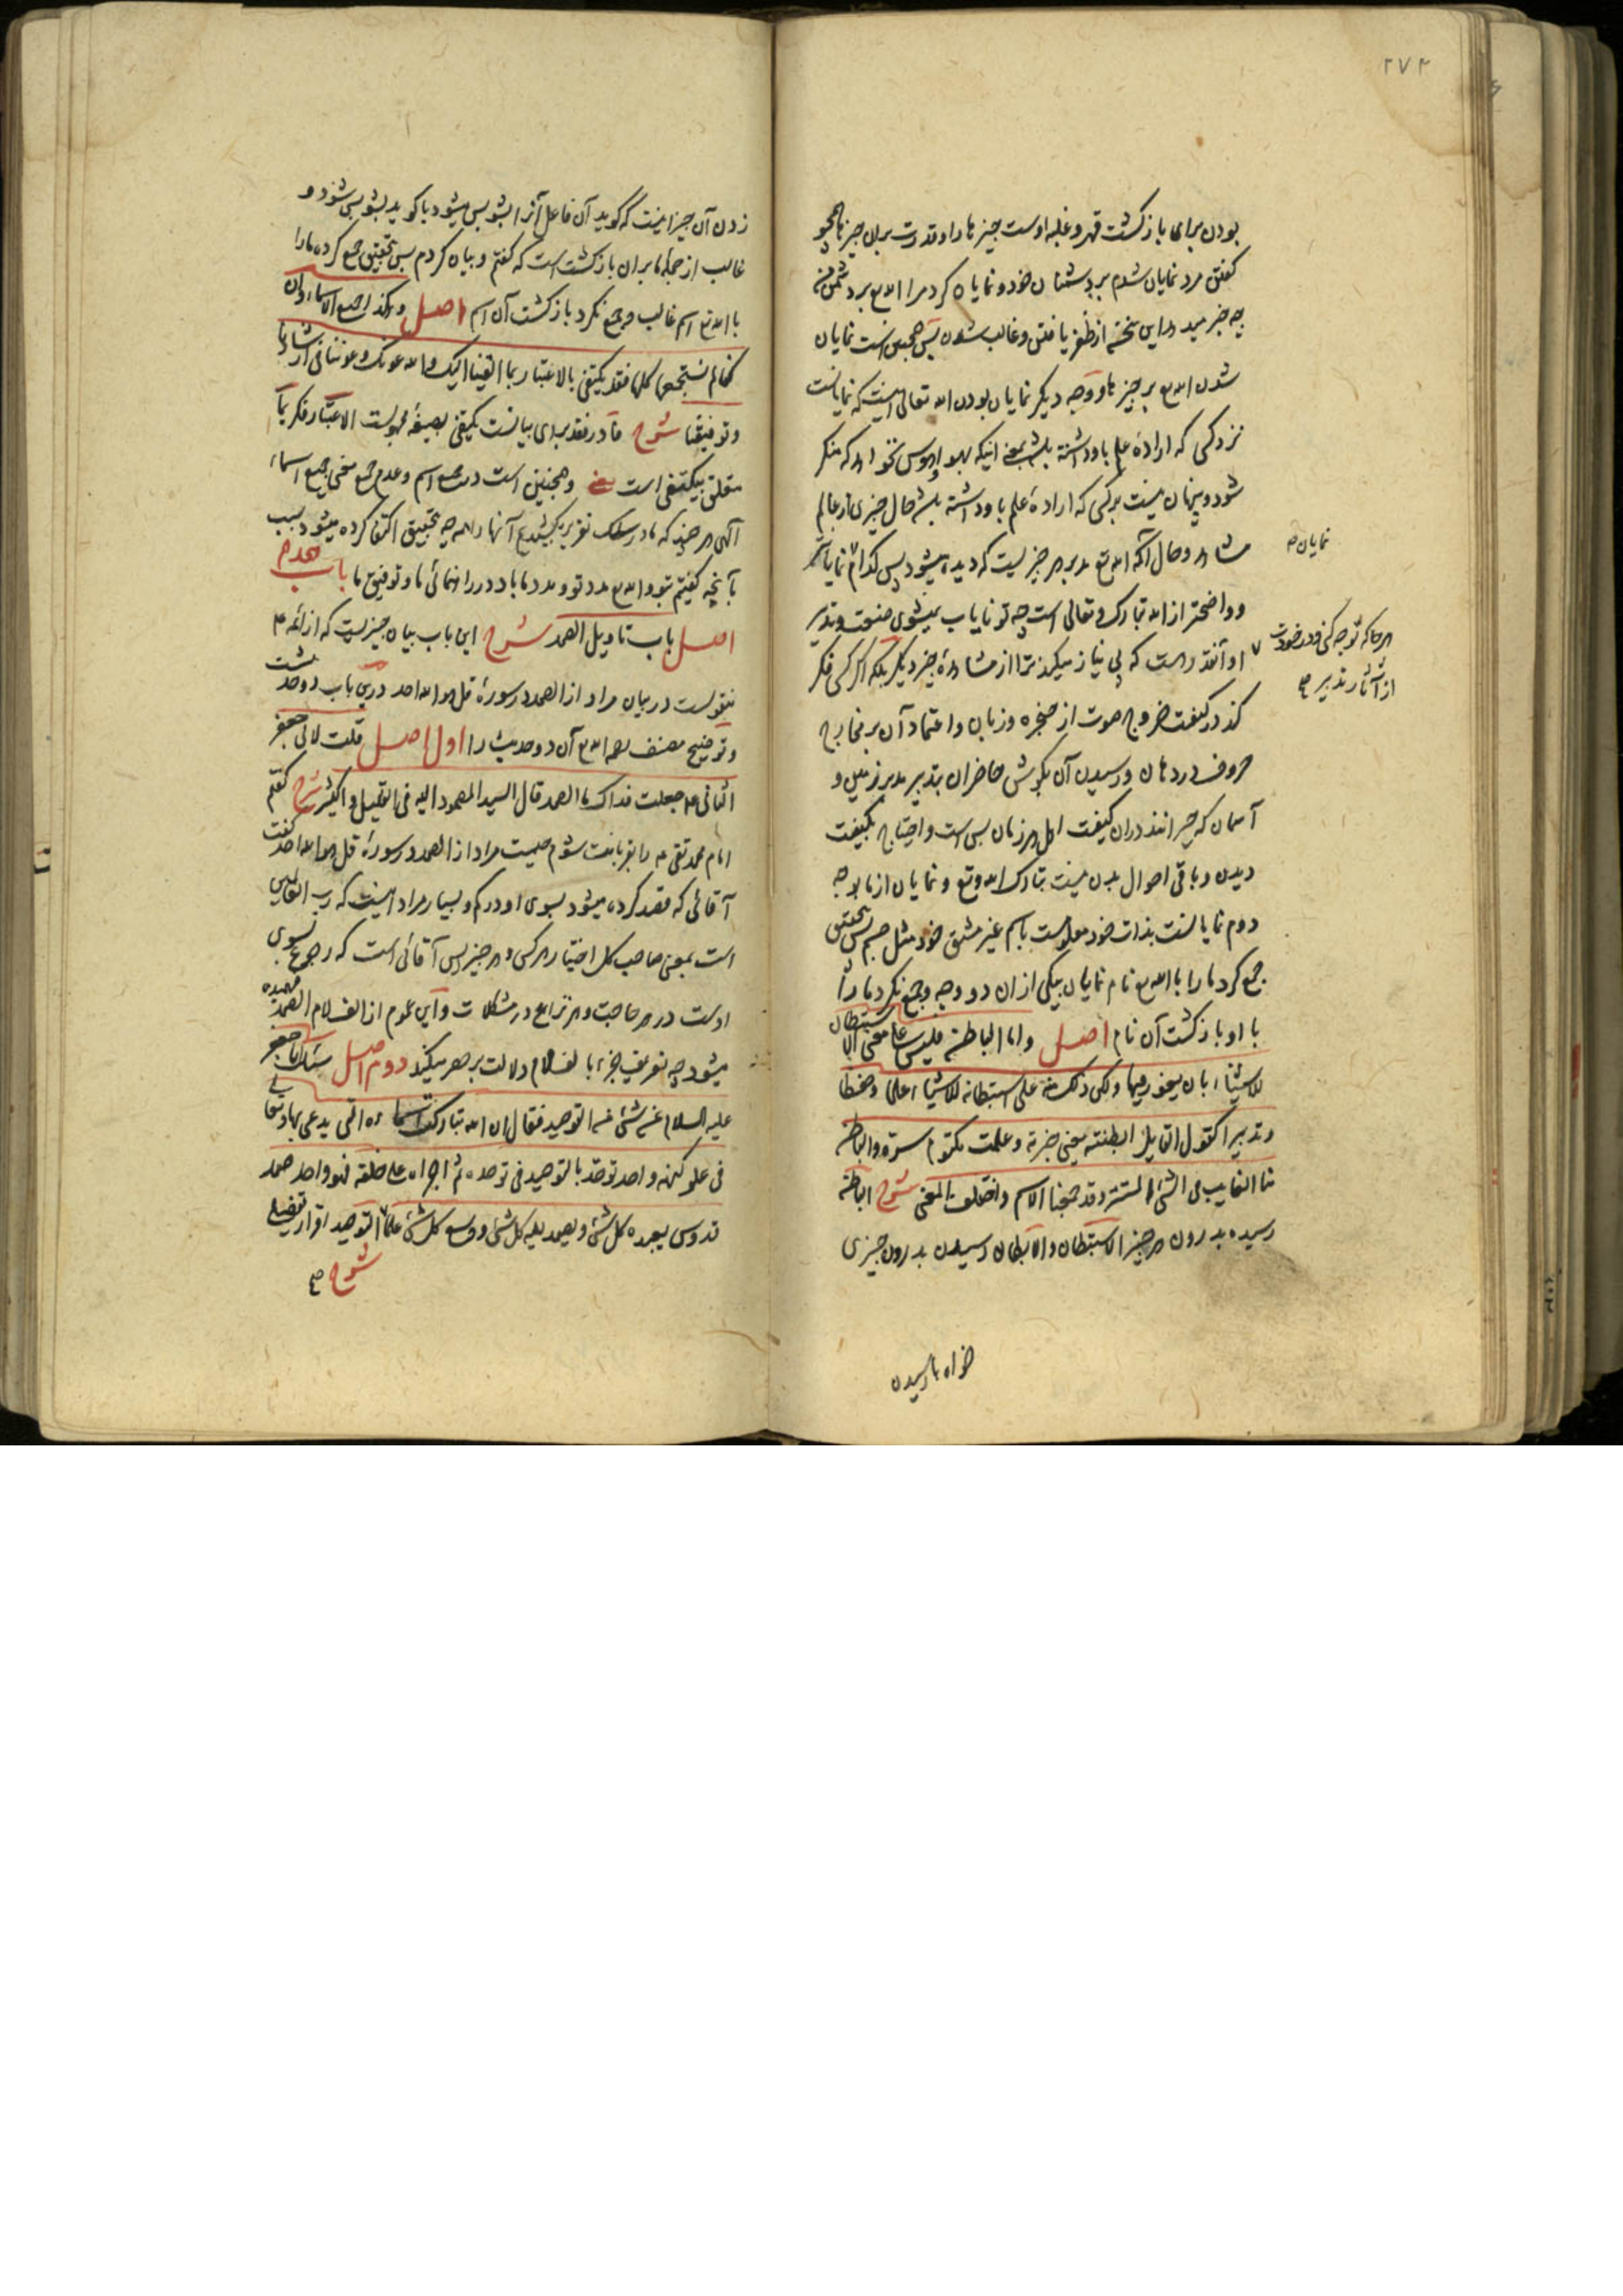 ٢٧٢
بودن برای بازگشت قهر و غلبه اوست چیزها را و قدرت بران چیزها همچو
گفتن مرد نمایان شدم بر دشمنان خود و نمایان کرد مرا الله تع بر دشمن من
چه خبر میدهد این سخن از ظفر یافتن و غالب شدن پس همچنین است نمایان
شدن الله تع بر چیزها و وجه دیگر نمایان بودن الله تعالی اینست که نمایانست
نزد کسی که اراده علم باو داشته باشد بمعنی اینکه بهوا و هوس نخواهد که منکر
شود و پنهان نیست بر کسی که اراده علم باو داشته باشد حال چیزی از عالم
مشاهد و حال آنکه الله تع مدبر هر چیزیست که دیده میشود پس کدام نمایان
نمایان
و واضحتر از الله تبارک و تعالی است چه تو نایاب نمیشوی صنعت و تدبیر
هر جا که توجه کنی و در خودت
از آثار تدبیر
او آنقدر هست که بی نیاز میکند ترا از مشاهده چیز دیگر بلکه اگر کسی فکر
کند در کیفیت خروج صوت از حنجره و زبان و اعتماد آن بر مخارج
حروف در دهان و رسیدن آن بگوش حاضران بتدبیر مدبر زمین و
آسمان که حیرانند دران کیفیت اهل هر زمان بس است و احتیاج بکیفیت
دیدن و باقی احوال بدن نیست تبارک الله و تع و نمایان از ما بوجه
دوم نمایانست بذات خود معلومست باسم غیر مشتق خود مثل جسم پس بتحقیق
جمع کرد ما را با الله تع نام نمایان بیکی ازان دو وجه و جمع نکرد ما را
با او بازگشت آن نام اصل و اما الباطن فلیس علی معنی الاستبطان
للاشیاء بان یغور فیها و لکن ذلک منه علی استبطانه للاشیاء علما و حفظا
و تدبیرا کقول القایل ابطنته یعنی خبرته و علمت مکتوم سره و الباطن
منا الغایب فی الشئ المستتر و قد جمعنا الاسم و اختلف المعنی شرح الباطن
رسیده بدرون هر چیز الاستبطان و الابطان رسیدن بدرون چیزی
خواه بارسیدن
زدن آن چیز اینست که گوید آن فاعل آنرا بشو پس میشود یا گوید بشو پس شود و
غالب از جمله ما بران بازگشت است که گفتم و بیان کردم پس بتحقیق جمع کرده ما را
با الله تع اسم غالب و جمع نکرد بازگشت آن اسم اصل و هکذا جمیع الاسماء و ان
کنا لم نستجمعها کلها فقد یکتفی بالاعتبار بما القینا الیک و الله عونک و عوننا فی ارشادنا
و توفیقنا شرح فا در فقد برای بیانست یکتفی بصیغه مجهولست الاعتبار فکر بما
متعلق بیکتفی است یعنی و همچنین است در جمع اسم و عدم جمع معنی جمیع اسماء
آلهی هر چند که ما در سلک تقریر نکشیدیم آنها را همه چه بتحقیق اکتفا کرده میشود بسبب
بآنچه گفتیم بتو و الله تع مدد تو و مدد ما باد در راهنمائی ما و توفیق ما باب هجدهم
اصل باب تاویل الصمد شرح این باب بیان چیزیست که از ائمه ع
منقولست در بیان مراد از الصمد در سوره قل هو الله احد درین باب دو حدیثست
و توضیح مصنف رحمه الله تع آن دو حدیث را اول اصل قلت لابی جعفر
الثانی ع جعلت فداک ما الصمد قال السید المصمود الیه فی القلیل و الکثیر شرح گفتم
امام محمد تقی ع را قربانت شوم چیست مراد از الصمد در سوره قل هو الله احد گفت
آقائی که قصد کرده میشود بسوی او در کم و بسیار مراد اینست که رب العالمین
است بمعنی صاحب کل اختیار هر کس و هر چیز پس آقائی است که رجوع بسوی
اوست در هر حاجت و هر نزاع و در مشکلات و این عموم از الف لام الصمد فهمیده
میشود چه تعریف خبر با لف لام دلالت بر حصر میکند دوم اصل سئلت ابا جعفر
علیه السلام عن شئ من التوحید فقال ان الله تبارکت اسماؤه التی یدعی بها و تعالی
فی علو کنهه واحد توحد بالتوحید فی توحده ثم اجراه علی خلقه فهو واحد صمد
قدوس یعبده کل شئ و یصمد الیه کل شئ و وسع کل شئ علما التوحید اقرار
شرح